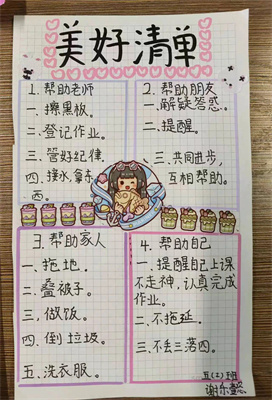 美好清单
1. 帮助老师
一、擦黑板。
二、登记作业。
三、管好纪律。
四、接水,拿东
西。
2. 帮助朋友
一、解疑答惑。
二、提醒。
三、共同进步,
互相帮助。
3. 帮助家人
一、拖地。
二、叠被子。
三、做饭。
四、倒垃圾。
五、洗衣服。
4. 帮助自己
一、提醒自己上课
不走神,认真完成
作业。
二、不拖延。
三、不丢三落四。